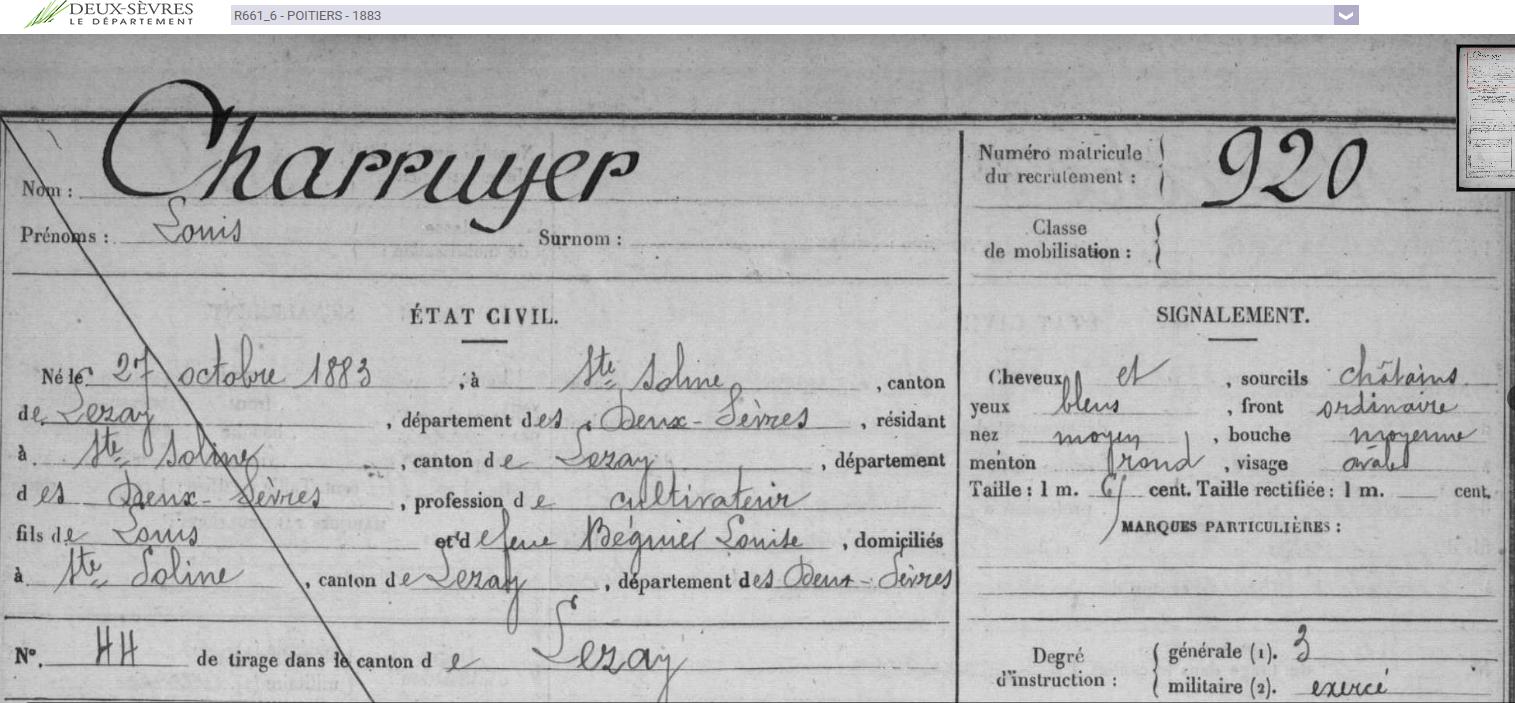 DEUX-SÈVRES
LE DÉPARTEMENT
R661_6 - POITIERS - 1883
Nom : Charruyer
Prénoms : Louis Surnom :
Numéro matricule du recrutement : 920
Classe de mobilisation :
ÉTAT CIVIL.
Né le 27 octobre 1883, à Ste Soline, canton
de Lezay, département des Deux-Sèvres, résidant
à Ste Soline, canton de Lezay, département
des Deux-Sèvres, profession de cultivateur
fils de Louis et d feue Béguier Louise, domiciliés
à Ste Soline, canton de Lezay, département des Deux-Sèvres
N°. 44 de tirage dans le canton de Lezay
SIGNALEMENT.
Cheveux et, sourcils châtains
yeux bleus, front ordinaire
nez moyen, bouche moyenne
menton rond, visage ovale
Taille : 1 m. cent. Taille rectifiée : 1 m. cent.
MARQUES PARTICULIÈRES :
Degré d'instruction :
générale (1). 3
militaire (2). exercé